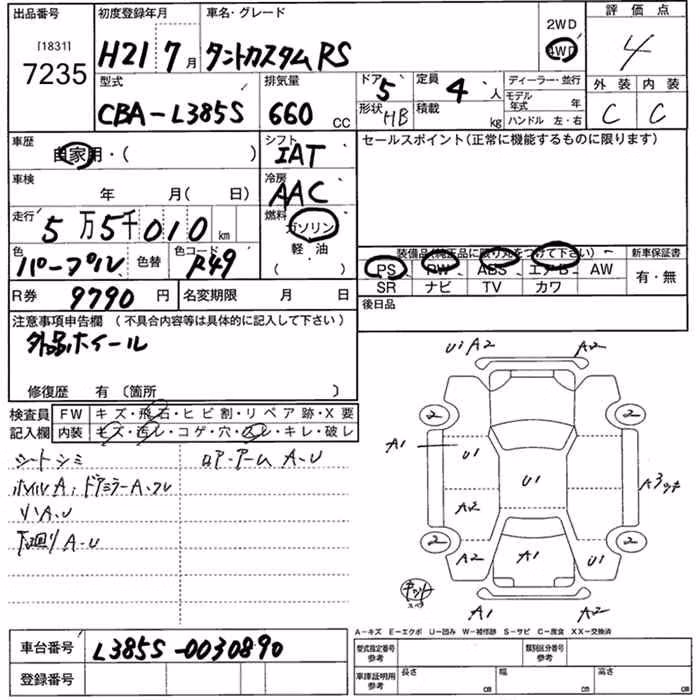 出品番号
[1831]
7235
初度登録年月
H21 7月
車名・グレード
タントカスタム RS
2WD
4WD
評価点
4
外装 内装
C C
型式
CBA-L385S
排気量
660 CC
ドア
5
形状
HB
定員
4 人
積載
kg
ディーラー・並行
モデル年式 年
ハンドル 左・右
車歴
自家用・( )
シフト
IAT
セールスポイント(正常に機能するものに限ります)
車検
年 月( 日)
冷房
AAC
走行
5万5千010 km
燃料
ガソリン
軽油
( )
色
パープル
色替
色コード
R49
装備品(純正品に限り丸をつけて下さい)
PS PW ABS エアB AW
SR ナビ TV カワ
新車保証書
有・無
R券 9790 円
名変期限 月 日
後日品
注意事項申告欄 (不具合内容等は具体的に記入して下さい)
外品ホイール
修復歴 有 〔箇所 〕
検査員記入欄
FW キズ・飛石・ヒビ割・リペア跡・X要
内装 キズ・汚レ・コゲ・穴・スレ・キレ・破レ
シートシミ
ホイルA、ドアミラーA・スレ
リハA・U
下廻りA・U
ロア・アームA・U
U1 A2 A2
2 2
A1 U1
U1
A3キチ
A2
2 2
A2 A1 U1
A1 A2
A-キズ E-エクボ U-凹み W-補修跡 S-サビ C-腐食 XX-交換済
車台番号 L385S-0030890
登録番号
型式指定番号 参考
類別区分番号 参考
車庫証明用 参考
長さ cm
幅 cm
高さ cm